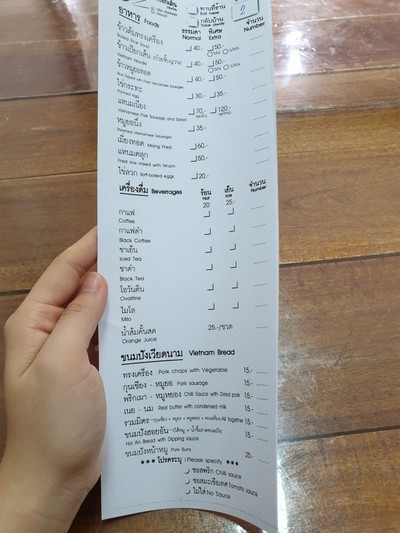 ทานที่ร้าน 2
กลับบ้าน
อาหาร Foods ธรรมดา Normal พิเศษ Extra จำนวน Number
ข้าวต้มทรงเครื่อง 40.- 50.-
ข้าวเปียกเส้น 40.- 50.-
Vietnam Noodle
ข้าวหมูยอทอด 40.- 50.-
ไข่กระทะ 30.- 35.-
Panned egg
แหนมเนือง 70.- 120.-
Vietnamese Pork Sausage and Salad
หมูยอนึ่ง 35.-
Steamed Vietnamese Sausages
เมี่ยงทอด Miang Fried 60.-
แหนมคลุก 50.-
Fried rice mixed with Nham
ไข่ลวก Soft-boiled eggs 20.-
เครื่องดื่ม Beverages ร้อน Hot เย็น Ice จำนวน Number
20 25.-
กาแฟ
Coffee
กาแฟดำ
Black Coffee
ชาเย็น
Iced Tea
ชาดำ
Black Tea
โอวันติน
Ovaltine
ไมโล
Milo
น้ำส้มคั้นสด 25.-/ขวด
Orange Juice
ขนมปังเวียดนาม Vietnam Bread
ทรงเครื่อง Pork chops with Vegetable 15.-
กุนเชียง - หมูยอ Pork sausage 15.-
พริกเผา - หมูหยอง Chili Sauce with Dried pork 15.-
เนย - นม Real butter with condensed milk 15.-
รวมมิตร All together 15.-
ขนมปังฮอยอัน 15.-
Hoi An Bread with Dipping sauce
ขนมปังหน้าหมู Pork Buns 25.-
*** โปรดระบุ : Please specify ***
ซอสพริก Chilli sauce
ซอสมะเขือเทศ Tomato sauce
ไม่ใส่ No Sauce